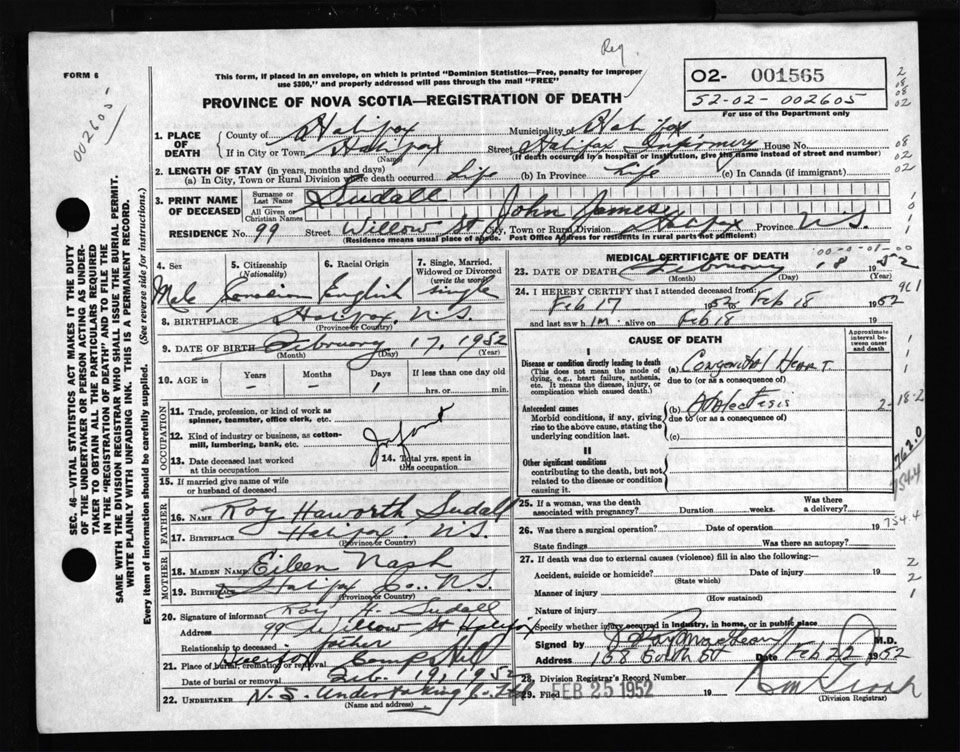 Reg.
FORM 6
This form, if placed in an envelope, on which is printed "Dominion Statistics—Free, penalty for improper
use $300," and properly addressed will pass through the mail "FREE"
02- 001565
52-02-002605
For use of the Department only
002605
PROVINCE OF NOVA SCOTIA—REGISTRATION OF DEATH
1. PLACE OF DEATH
County of Halifax Municipality of Halifax
If in City or Town Halifax Street Halifax Infirmary House No.
(Name) (If death occurred in a hospital or institution, give the name instead of street and number)
2. LENGTH OF STAY (in years, months and days)
(a) In City, Town or Rural Division where death occurred Life (b) In Province Life (c) In Canada (if immigrant)
3. PRINT NAME OF DECEASED
Surname or Last Name Sudall
All Given or Christian Names John James
RESIDENCE No. 99 Street Willow St City, Town or Rural Division Halifax Province N.S.
(Residence means usual place of abode. Post Office Address for residents in rural parts not sufficient)
4. Sex Male
5. Citizenship (Nationality) Canadian
6. Racial Origin English
7. Single, Married, Widowed or Divorced (write the word) Single
8. BIRTHPLACE Halifax, N.S.
(Province or Country)
9. DATE OF BIRTH February 17, 1952
(Month) (Day) (Year)
10. AGE in Years Months Days If less than one day old
– – hrs. or min.
OCCUPATION
11. Trade, profession, or kind of work as spinner, teamster, office clerk, etc.
12. Kind of industry or business, as cotton-mill, lumbering, bank, etc.
Infant
13. Date deceased last worked at this occupation
14. Total yrs. spent in this occupation
15. If married give name of wife or husband of deceased
FATHER
16. NAME Roy Haworth Sudall
17. BIRTHPLACE Halifax, N.S.
(Province or Country)
MOTHER
18. MAIDEN NAME Eileen Nash
19. BIRTHPLACE Halifax Co., N.S.
(Province or Country)
20. Signature of informant Roy H. Sudall
Address 99 Willow St Halifax
Relationship to deceased father
21. Place of burial, cremation or removal Camp Hill
Date of burial or removal Feb. 19, 1952
22. UNDERTAKER N.S. Undertaking Co. Ltd.
(Name and address)
MEDICAL CERTIFICATE OF DEATH
23. DATE OF DEATH February 18 1952
(Month) (Day) (Year)
24. I HEREBY CERTIFY that I attended deceased from:
Feb 17 1952 to Feb 18 1952
and last saw him alive on Feb 18
CAUSE OF DEATH
Approximate interval between onset and death
I
Disease or condition directly leading to death
(This does not mean the mode of dying, e.g., heart failure, asthenia, etc. It means the disease, injury, or complication which caused death.)
(a) Congenital Heart
due to (or as a consequence of)
Antecedent causes
Morbid conditions, if any, giving rise to the above cause, stating the underlying condition last.
(b) Atelectasis
due to (or as a consequence of)
(c)
II
Other significant conditions
contributing to the death, but not related to the disease or condition causing it.
762.0
754.4
25. If a woman, was the death associated with pregnancy? Duration weeks. Was there a delivery?
26. Was there a surgical operation? Date of operation 19
754.4
State findings Was there an autopsy?
27. If death was due to external causes (violence) fill in also the following:—
Accident, suicide or homicide? Date of injury 19
(State which)
Manner of injury
(How sustained)
Nature of injury
Specify whether injury occurred in industry, in home, or in public place
Signed by M.D.
Address 158 South St Date Feb 22 1952
28. Division Registrar's Record Number
29. Filed FEB 25 1952 19
(Division Registrar)
SEC. 46—VITAL STATISTICS ACT MAKES IT THE DUTY
OF THE UNDERTAKER OR PERSON ACTING AS UNDER-
TAKER TO OBTAIN ALL THE PARTICULARS REQUIRED
IN THE "REGISTRATION OF DEATH" AND TO FILE THE
SAME WITH THE DIVISION REGISTRAR WHO SHALL ISSUE THE BURIAL PERMIT.
WRITE PLAINLY WITH UNFADING INK. THIS IS A PERMANENT RECORD.
Every item of information should be carefully supplied. (See reverse side for instructions.)